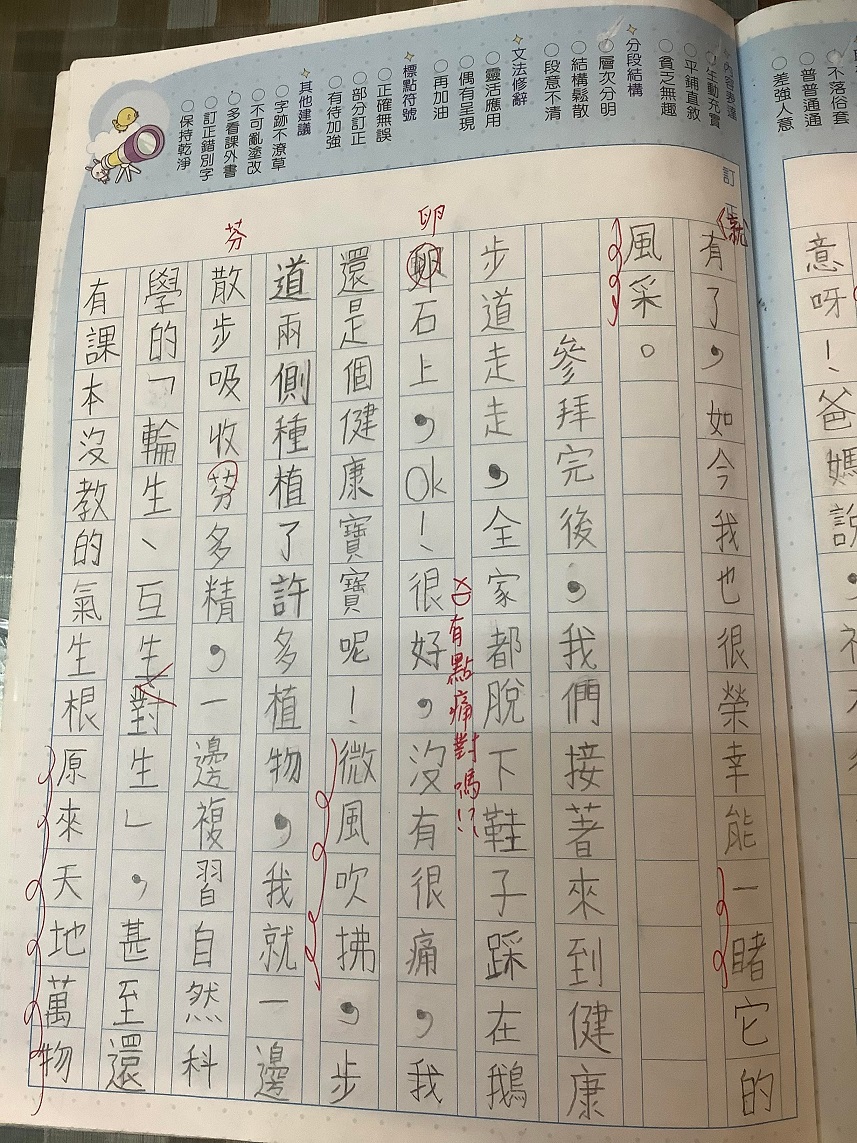 意呀！爸媽說，
有了，如今我也很榮幸能一睹它的
風采。
參拜完後，我們接著來到健康
步道走走，全家都脫下鞋子踩在鵝
卵石上，Ok！很好，沒有很痛，我
還是個健康寶寶呢！微風吹拂，步
道兩側種植了許多植物，我就一邊
散步吸收芬多精，一邊複習自然科
學的「輪生、互生對生」，甚至還
有課本沒教的氣生根原來天地萬物
就
卵
芬
XD有點痛對嗎!?
訂正
不落俗套
普普通通
差強人意
內容多達
生動充實
平鋪直敘
貧乏無趣
分段結構
層次分明
結構鬆散
段意不清
文法修辭
靈活應用
偶有呈現
再加油
標點符號
正確無誤
部分訂正
有待加強
其他建議
字跡不潦草
不可亂塗改
多看課外書
訂正錯別字
保持乾淨